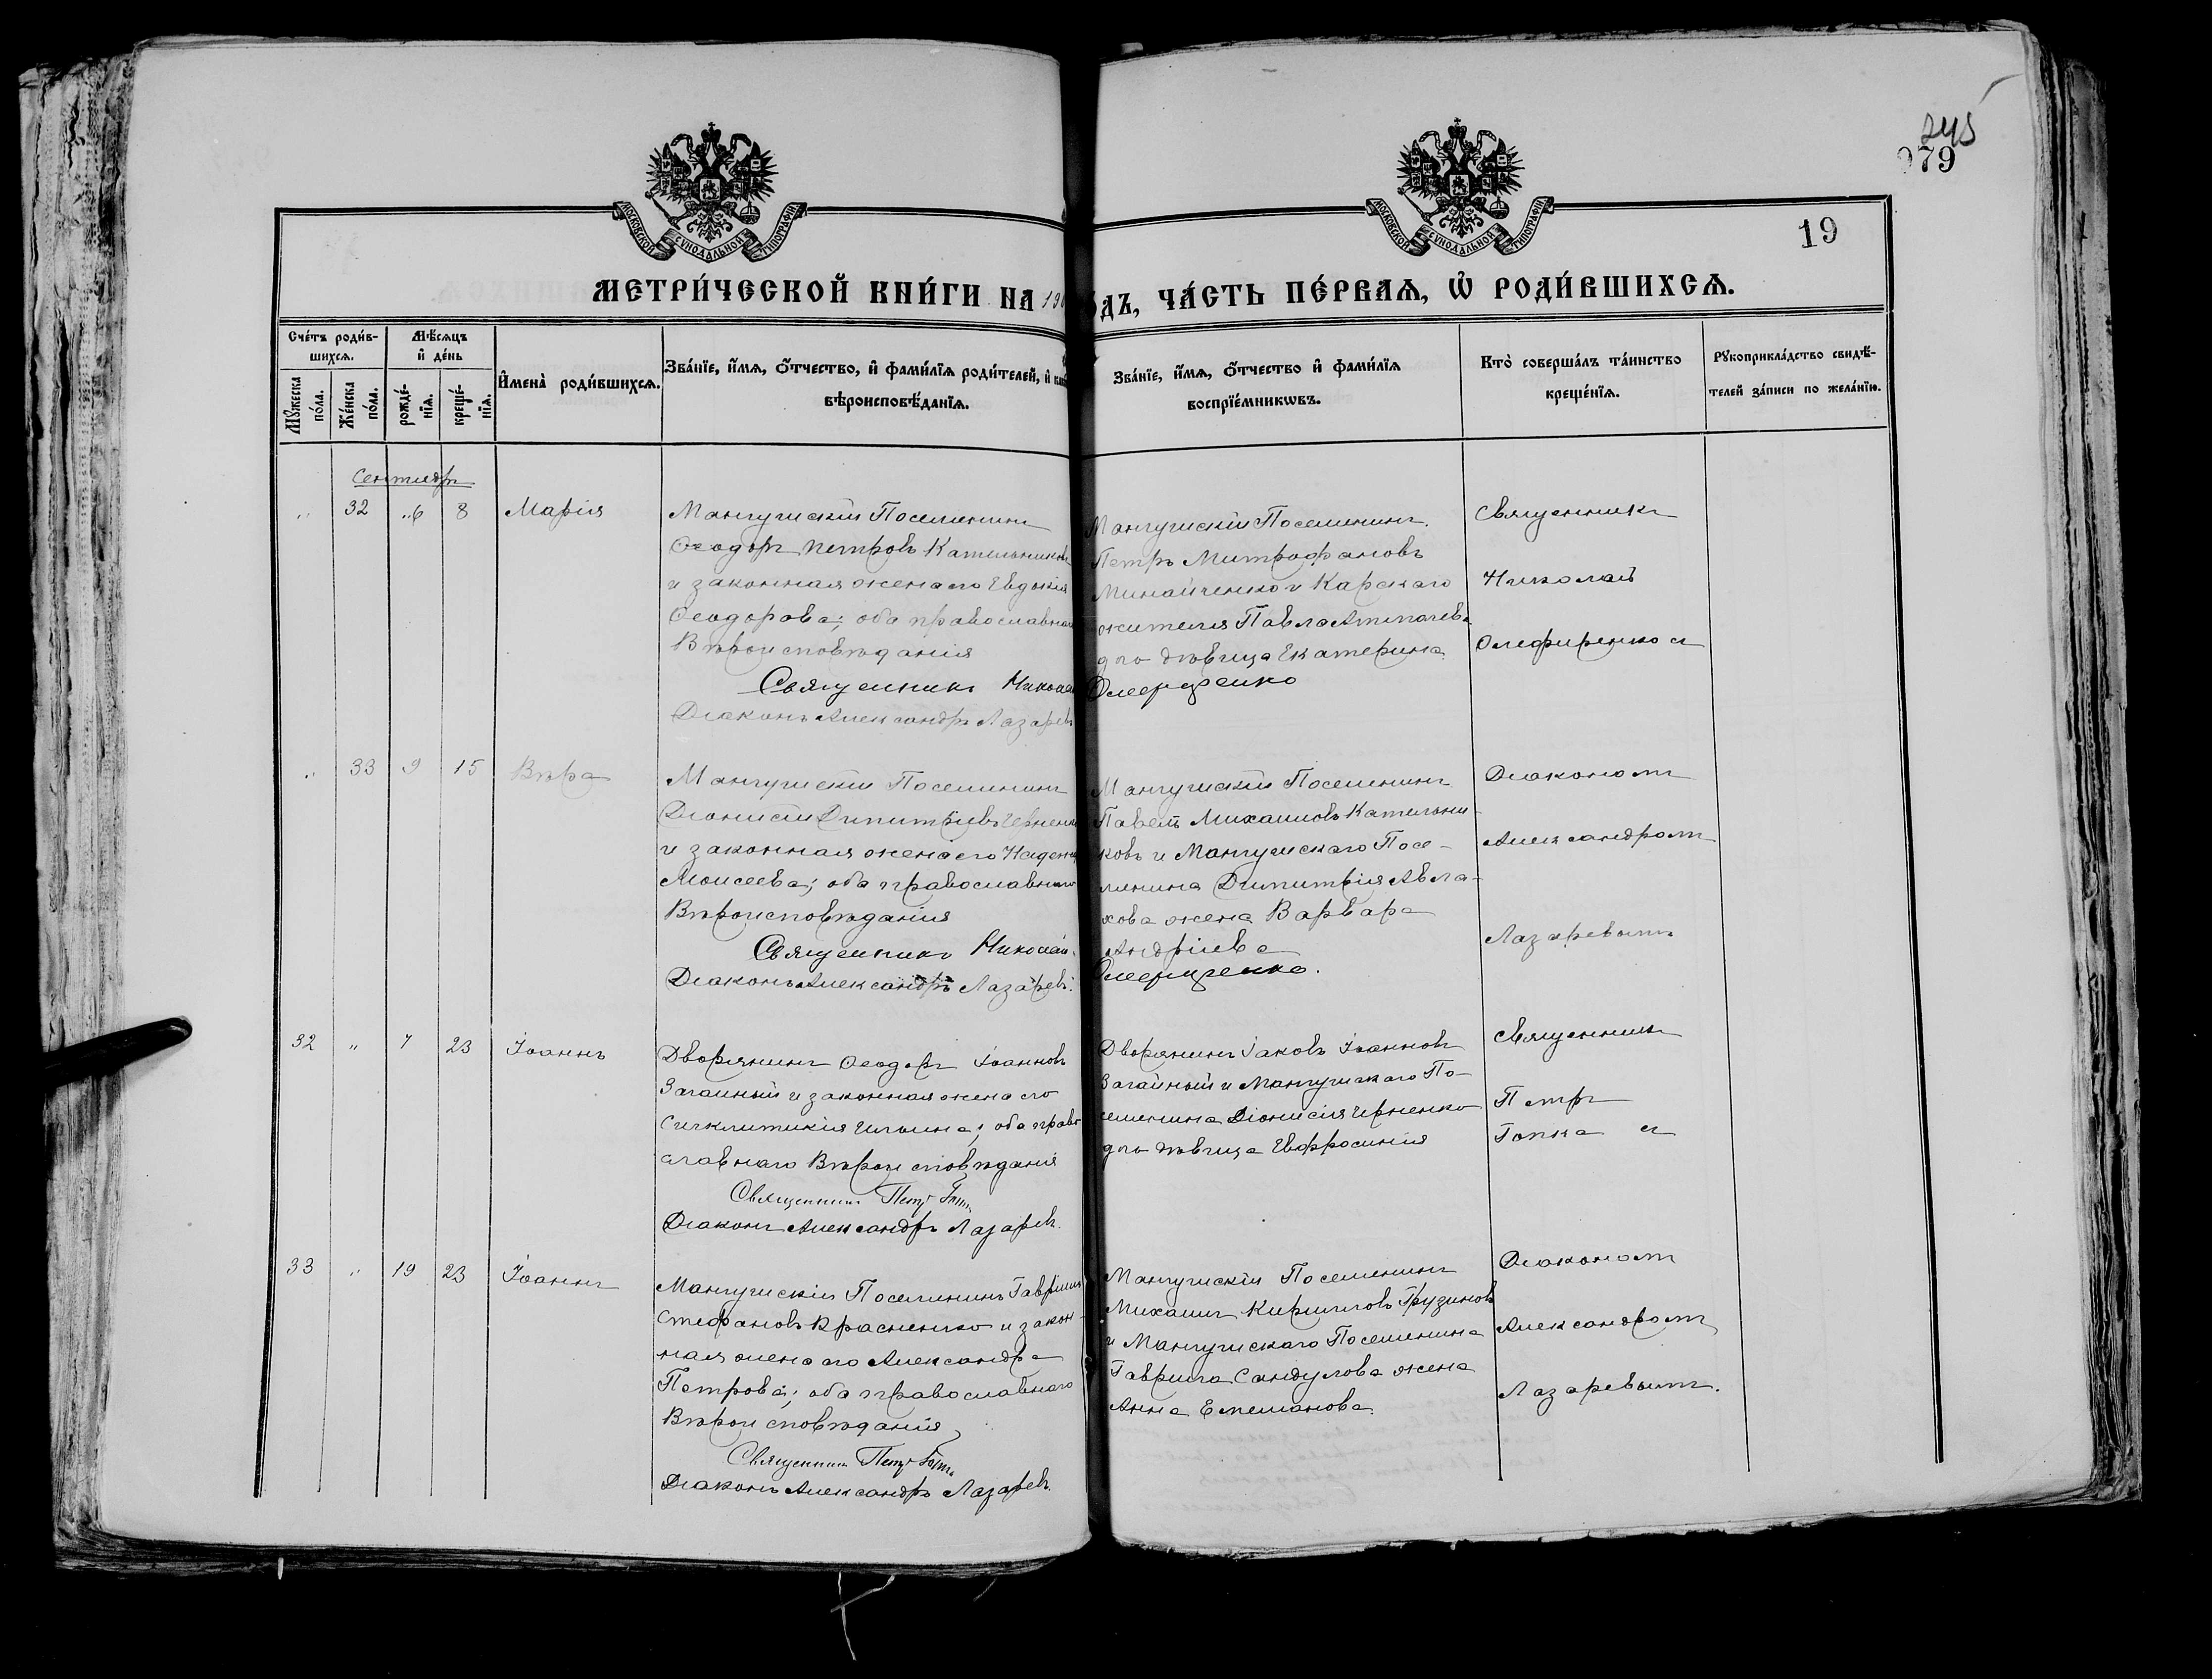 245
979
19
МОСКОВСКОЙ СУНОДАЛЬНОЙ ТИПОГРАФІИ
МОСКОВСКОЙ СУНОДАЛЬНОЙ ТИПОГРАФІИ
МЕТРИ́ЧЕСКОЙ КНИ́ГИ НА 190
ДЪ, ЧА́СТЬ ПЕ́РВАѦ, Ѡ҆ РОДИ́ВШИХСѦ.
Сче́тъ роди́в-
шихсѧ.
Мѣ́сѧцъ
и҆ де́нь
Мꙋ́жеска по́ла.
Же́нска по́ла.
рожде́-
нїѧ.
креще́-
нїѧ.
И҆мена̀ роди́вшихсѧ.
Зва́нїе, и҆́мѧ, ѻ҆́тчество, и҆ фами́лїѧ роди́телей, и҆
вѣроисповѣ́данїѧ.
Зва́нїе, и҆́мѧ, ѻ҆́тчество и҆ фами́лїѧ
воспрїе́мникѡвъ.
Кто̀ соверша́лъ та́инство
креще́нїѧ.
Рꙋкоприкла́дство свидѣ́-
телей за́писи по жела́нїю.
Сентябрь
„ 32 „6 8 Марія
Мангушскій Поселянинъ
Ѳеодоръ Петровъ Кательниковъ
и законная жена его Евдокія
Ѳеодорова; оба православнаго
Вѣроисповѣданія
Священникъ Николай
Діаконъ Александръ Лазаревъ
Мангушскій Поселянинъ
Петръ Митрофановъ
Минайченко и Карскаго
жителя Павла
дочь дѣвица Екатерина
Олефиренко
Священникъ
Николай
Олефиренко съ
„ 33 9 15 Вѣра
Мангушскій Поселянинъ
Діонисій Димитріевъ Черненко
и законная жена его Надежда
Моисеева; оба православнаго
Вѣроисповѣданія
Священникъ Николай
Діаконъ Александръ Лазаревъ.
Мангушскій Поселянинъ
Павелъ Михаиловъ Кательни-
ковъ и Мангушскаго Посе-
лянина Димитрія Авла-
хова жена Варвара
Андріева
Олефиренко.
Діаконом
Александром
Лазаревымъ
32 „ 7 23 Іоаннъ
Дворянинъ Ѳеодоръ Іоанновъ
Загайный и законная жена его
Сигклитикія Ильина; оба право
славнаго Вѣроисповѣданія
Священникъ Петръ
Діаконъ Александръ Лазаревъ.
Дворянинъ Іаковъ Іоанновъ
Загайный и Мангушскаго По-
селянина Діонисія Черненко
дочь дѣвица Евфросинія
Священникъ
Петръ
Гопка съ
33 „ 19 23 Іоаннъ
Мангушскій Поселянинъ Гавріилъ
Стефановъ Красненко и закон-
ная жена его Александра
Петрова; оба православнаго
Вѣроисповѣданія
Священникъ Петръ
Діаконъ Александръ Лазаревъ.
Мангушскій Поселянинъ
Михаилъ Кирилловъ Грузиновъ
и Мангушскаго Поселянина
Гавриила Сандулова жена
Анна Емелианова.
Діаконом
Александром
Лазаревымъ.